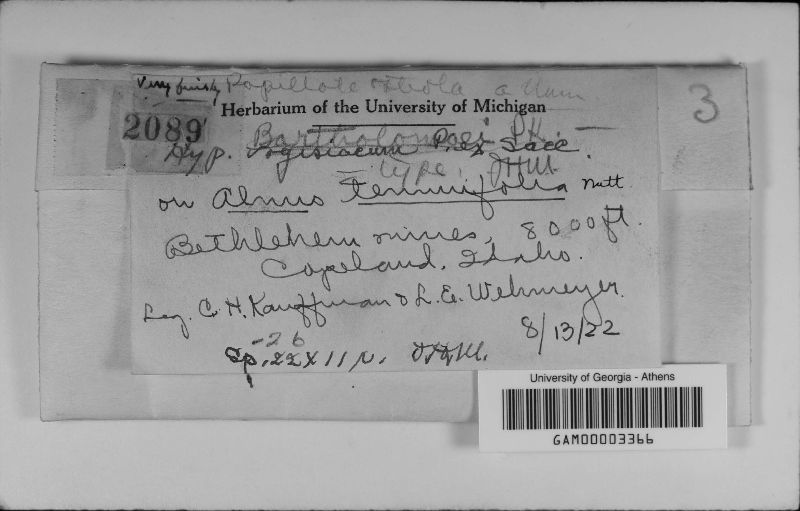 Very finely Papillate
Herbarium of the University of Michigan
3
2089
Bartholomaei Pk.
Hyp. vogesiacum P. ex Sacc.
type. JHM
on Alnus tenuifolia Nutt
Bethlehem mines, 8000 ft.
Copeland, Idaho.
Leg. C. H. Kauffman & L. E. Wehmeyer.
8/13/22
-26
Sp. 22 X 11 µ. JHM.
University of Georgia - Athens
GAM00003366